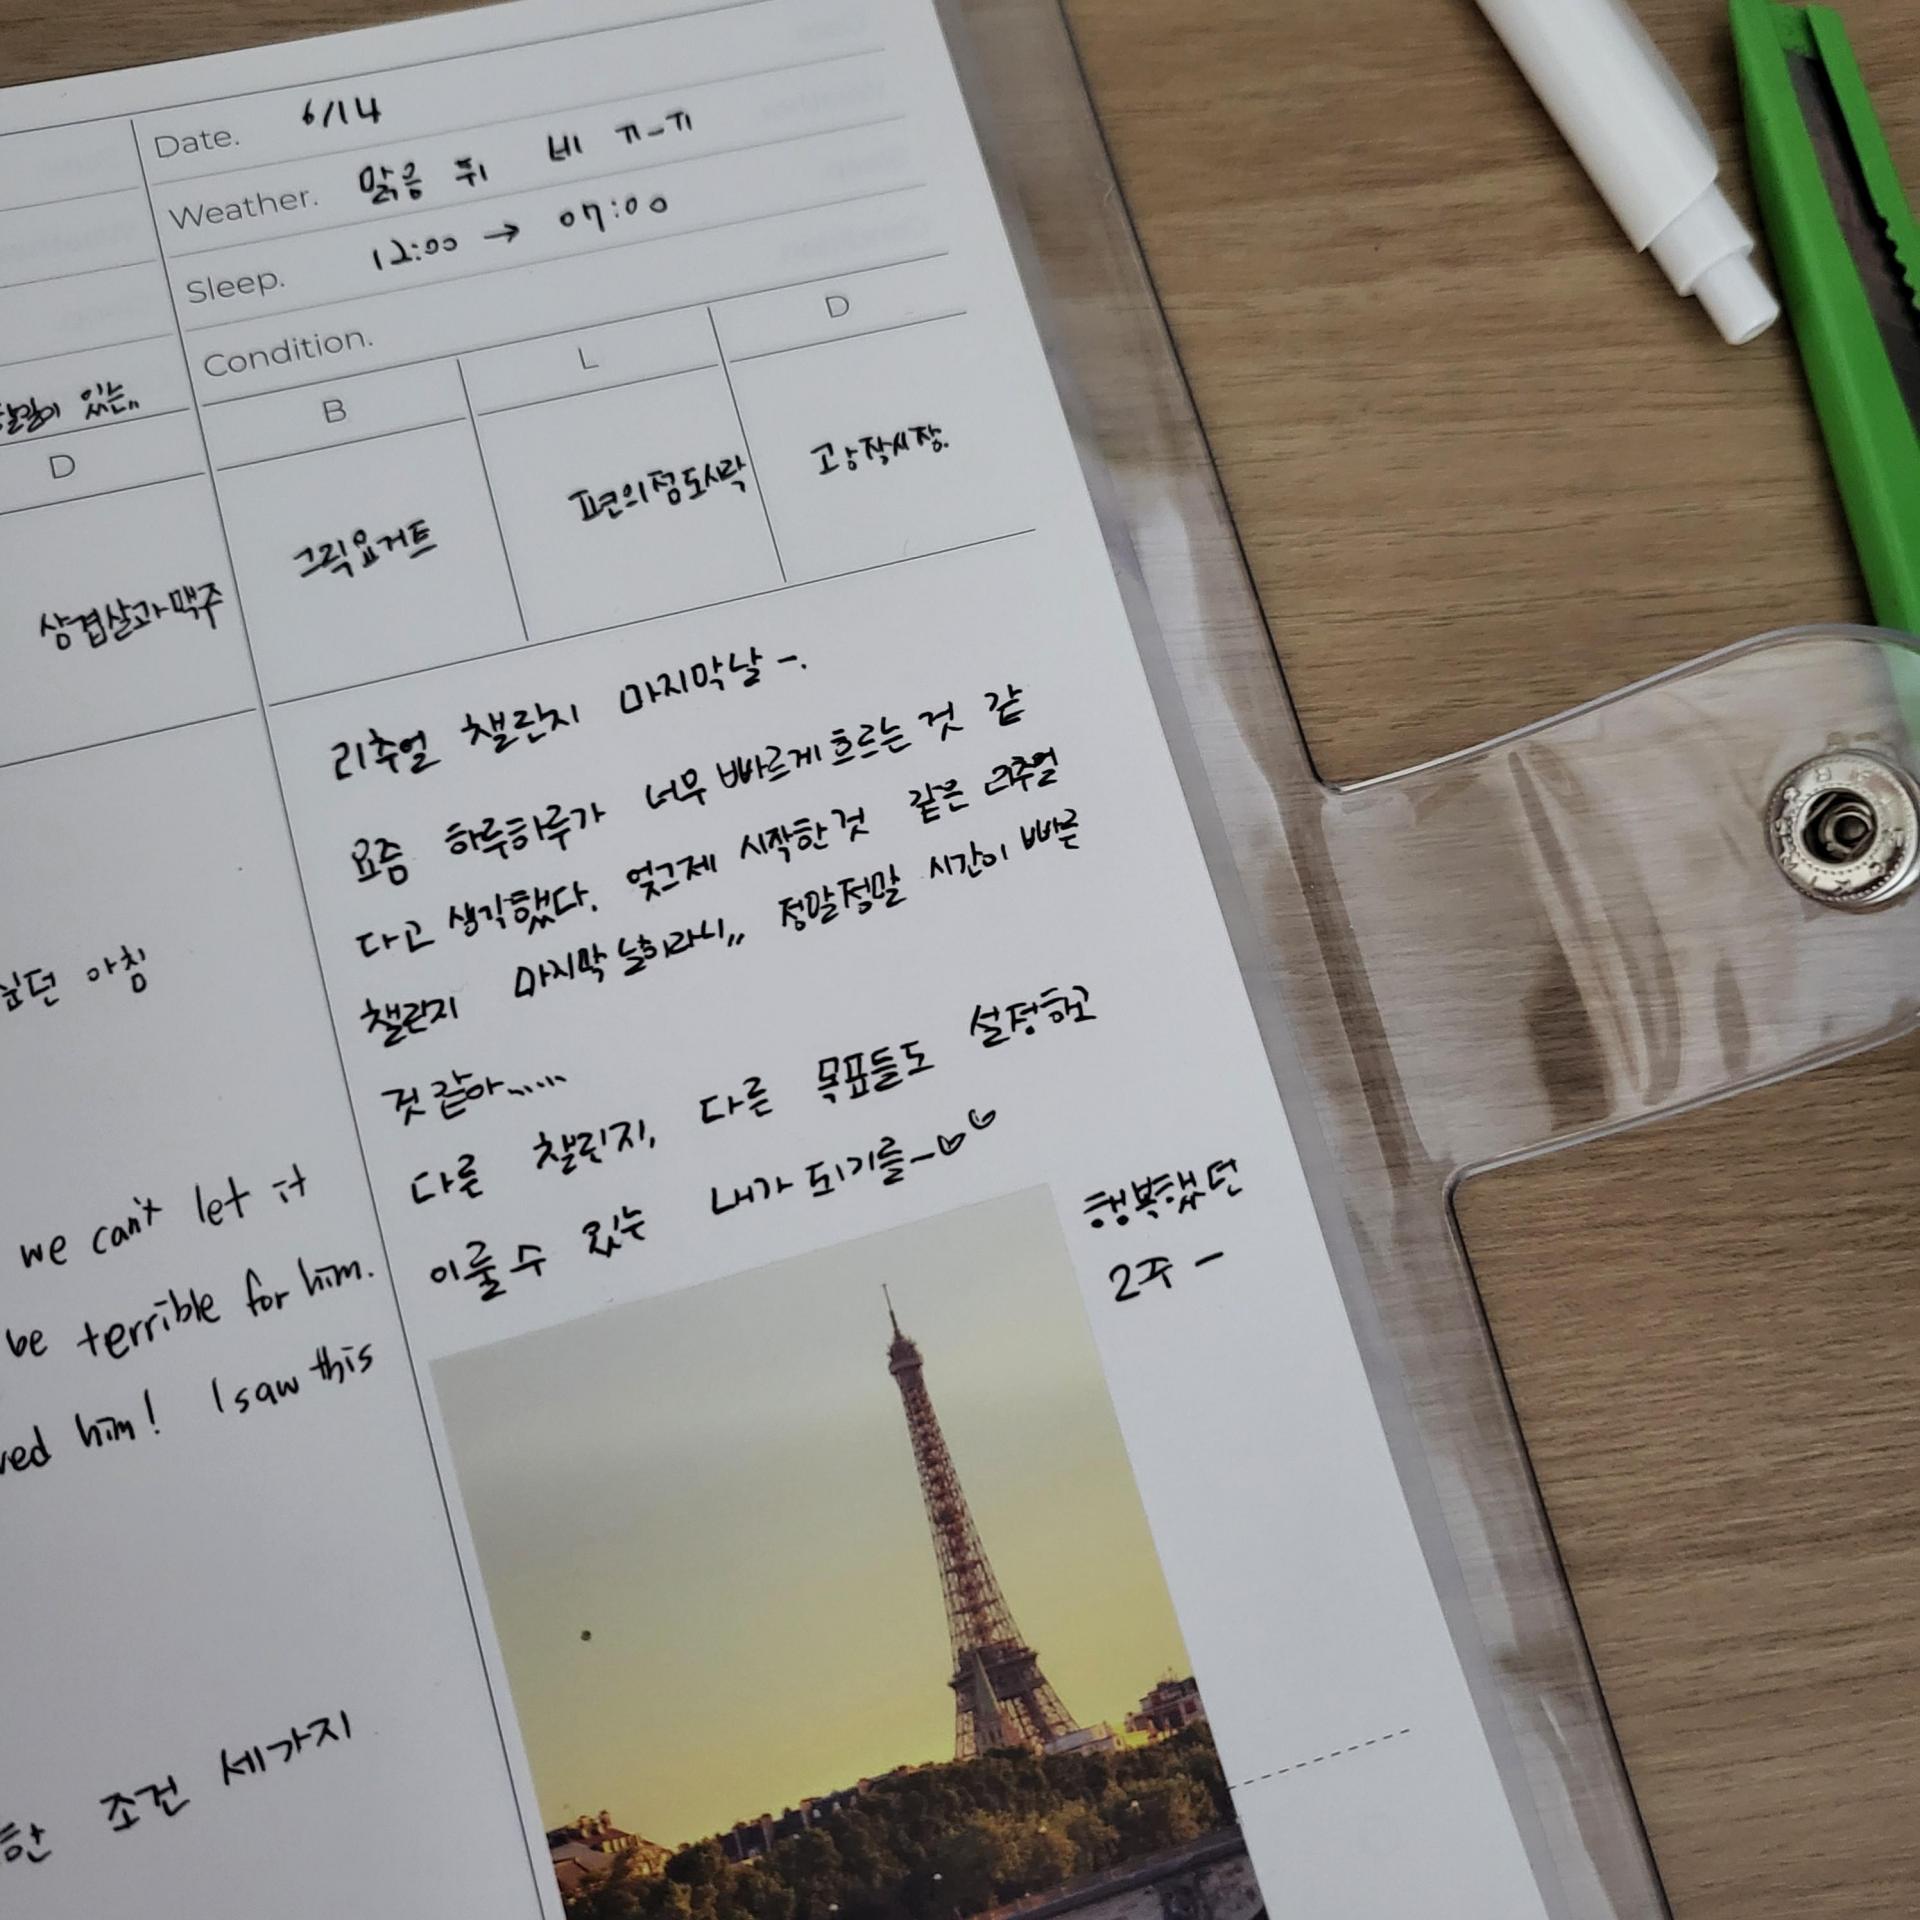 있는,,
D
삼겹살과맥주
싶던 아침
we can't let it
be terrible for him.
him! I saw this
조건 세가지
Date. 6/14
Weather. 맑음 뒤 비 ㅠ-ㅠ
Sleep. 12:00 → 07:00
Condition.
B L D
그릭요거트 편의점도시락
리추얼 챌린지 마지막날-.
요즘 하루하루가 너무 빠르게 흐르는 것 같
다고 생각했다. 엊그제 시작한것 같은 리추얼
챌린지 마지막날이라니,, 정말정말 시간이 빠른
것 같아.....
다른 챌린지, 다른 목표들도 설정하고
이룰 수 있는 내가 되기를-♡♡
행복했던
2주 -